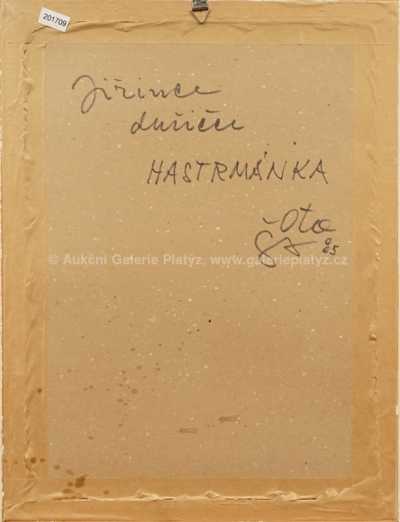 201709
Jiřince
dušičce
HASTRMÁNKA
Ota
© Aukční Galerie Platýz, www.galerieplatyz.cz